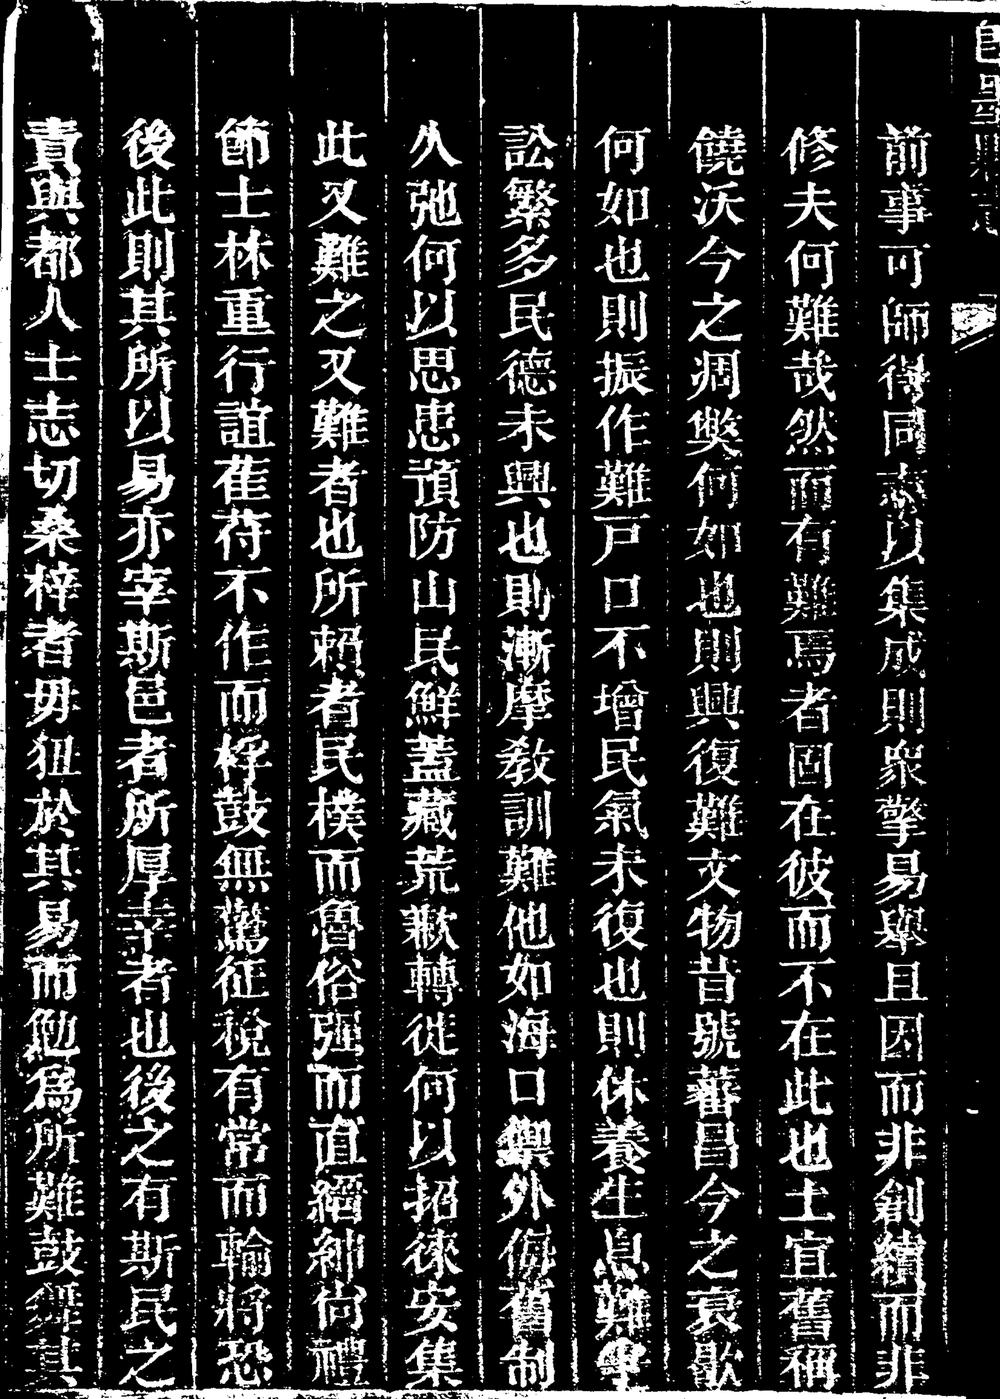 即墨縣志
前事可師得同志以集成則衆擎易舉且因而非創續而非
修夫何難哉然而有難焉者固在彼而不在此也土宜舊稱
饒沃今之凋獘何如也則興復難文物昔號蕃昌今之衰歇
何如也則振作難戸口不增民氣未復也則休養生息難
訟繁多民德未興也則漸摩敎訓難他如海口禦外侮舊制
久弛何以思患預防山民鮮蓋藏荒歉轉徙何以招徠安集
此又難之又難者也所賴者民樸而魯俗强而直縉紳尙禮
節士林重行誼萑苻不作而桴鼓無驚征稅有常而輸將恐
後此則其所以易亦宰斯邑者所厚幸者也後之有斯民之
責與都人士志切桑梓者毋狃於其易而勉爲所難鼓舞其